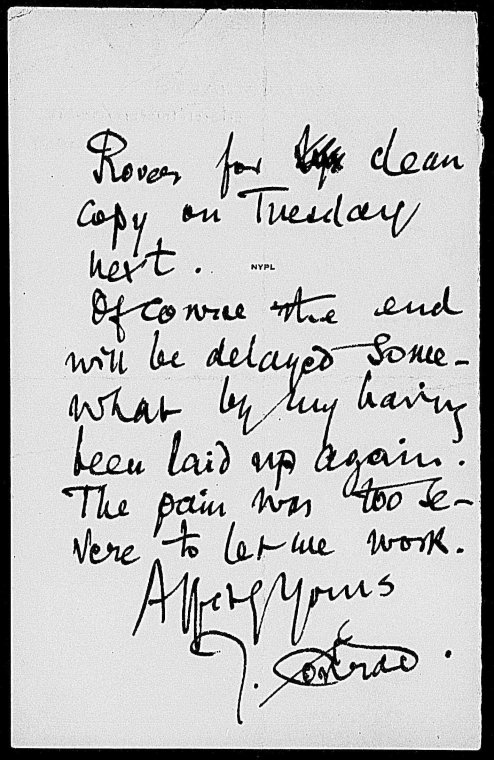 Rover for clean
copy on Tuesday
next.
NYPL
Of course the end
will be delayed some-
what by my having
been laid up again.
The pain was too se-
vere to let me work.
Affectly Yours
J. Conrad.